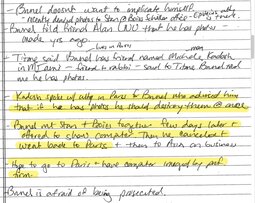 - Banel doesn't want to implicate himself
- recently denied photos to Stan @ Boies Schiller office -
Banel told friend Alan (LNU) that he has photos
made yrs ago.
- Titone said Banel has friend named Michele Kadosh
in - friend & rabbi - said to Titone Banel
he has photos.
- Kadosh spoke w/ in Paris & Banel who advised him
that if he has photos he should destroy them @ once
- Banel met Stan + Boies together few days later &
offered to show computer. Then he canceled &
went back to Paris + then to on business
hope to go to Paris + have computer imaged by prof.
firm.
- Banel is afraid of being prosecuted.